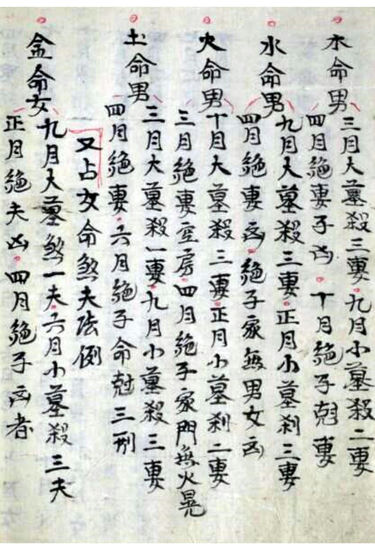 木命男
三月大墓殺三妻九月小墓殺二妻
四月絶妻子凶 十月絶子尅妻
水命男
九月大墓殺三妻正月小墓刹三妻
四月絶妻凶絶子家無男女凶
火命男
十月大墓殺三妻正月小墓刹二妻
三月絶妻空房四月絶子家門無火晃
土命男
三月大墓殺一妻九月小墓殺三妻
四月絶妻六月絶子命尅三刑
又占女命煞夫法例
金命女
九月大墓煞一夫六月小墓殺三夫
正月絶夫凶四月絶子凶者